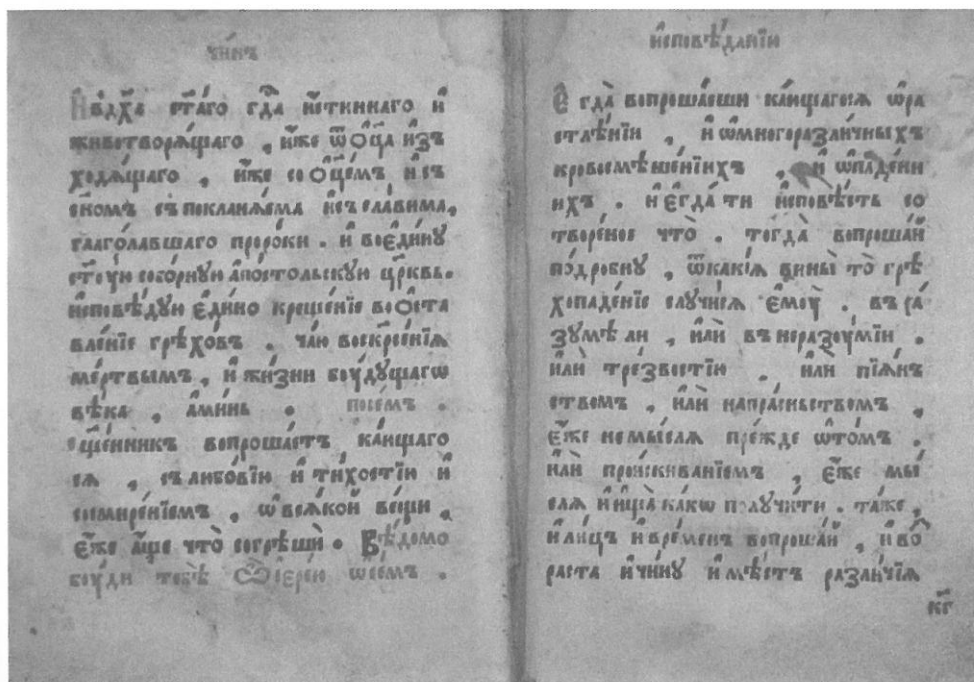 чи́нъ
И҆ вдх҃а ст҃а́го гд҃а и҆́стиннаго и҆
животворѧ́щаго , и҆́же ѿ ѻ҆ц҃а и҆з̾
ходѧ́щаго , и҆́же со ѻ҆ц҃е́мъ и҆ съ
сн҃омъ съ покланѧ́ема и҆ съ сла́вима,
глаго́лавшаго проро́ки . и҆ во є҆ди́ну
ст҃у́ю собо́рную а҆по́стольскую цр҃квь.
и҆сповѣ́дую є҆ди́но кр҃ще́нїе во ѻ҆ста
вле́нїе грѣхо́въ . ча́ю воскр҃се́нїѧ
ме́ртвымъ , и҆ жи́зни бѹ́дущагѡ
вѣ́ка , а҆ми́нь . посе́мъ .
сщ҃е́нникъ вопроша́етъ ка́ющаго
сѧ , съ любо́вїю и҆ ти́хостїю и҆
со смире́нїемъ , ѡ҆ всѧ́кой ве́щи ,
є҆́же а҆́ще что̀ согрѣшѝ . Вѣ́домо
бѹ́ди тебѣ̀ ѽ і҆ере́ю ѡ҆ се́мъ .
и҆сповѣ́данїю
Є҆ гда̀ вопроша́еши ка́ющагосѧ ѡ҆ ра
стлѣ́нїи , и҆ ѡ҆ многоразли́чныхъ
кровосмѣше́нїихъ , и҆ ѡ҆ паде́нїи
ихъ . и҆ є҆гда̀ ти и҆сповѣ́сть со
творе́ное что̀ . тогда̀ вопроша́й
подро́бну , ѿ каки́ѧ вины̀ то̀ грѣ
хопаде́нїе случи́сѧ є҆мѹ̀ . въ ра́
зумѣ ли , и҆лѝ въ неразѹ́мїи .
и҆лѝ тре́звостїю . и҆лѝ пїѧ́нь
ствомъ , и҆лѝ напра́сньствомъ ,
є҆́же не мы́слѧ пре́жде ѡ҆ то́мъ .
и҆лѝ про́искиванїемъ , є҆́же мы́
слѧ и҆ ища̀ ка́кѡ получи́ти . та́же ,
и҆ ли́цъ и҆ вре́менъ вопроша́й , и҆ во́
раста и҆ чи́ну и҆ мѣ́стъ разли́чїѧ
кг҃